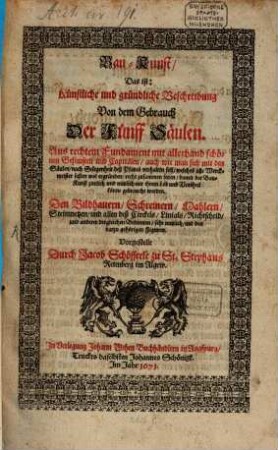 Bau-Kunst/
Das ist:
Künstliche und gründliche Beschreibung
Von dem Gebrauch
Der Fünff Säulen.
Aus rechtem Fundament mit allerhand schö-
nen Gesimsen und Capitälen/ auch wie man sich mit den
Säulen/ nach Gelegenheit deß Platzes verhalten soll/ welches alle Werck-
meister
könne gebracht werden.
Den Bildhauern/ Schreinern/ Mahlern/
Steinmetzen/ und allen deß Circkels/ Linials/ Richtscheid/
und andern dergleichen Bedienten/ sehr nutzlich/ mit den
darzu gehörigen Figuren.
Vorgestellt
Durch Jacob Schüffele zu St. Stephans
Retenberg im Algew.
In Verlegung Johann Buchhändlern in Augspurg/
Truckts daselbsten Johannes Schönigk.
Im Jahr